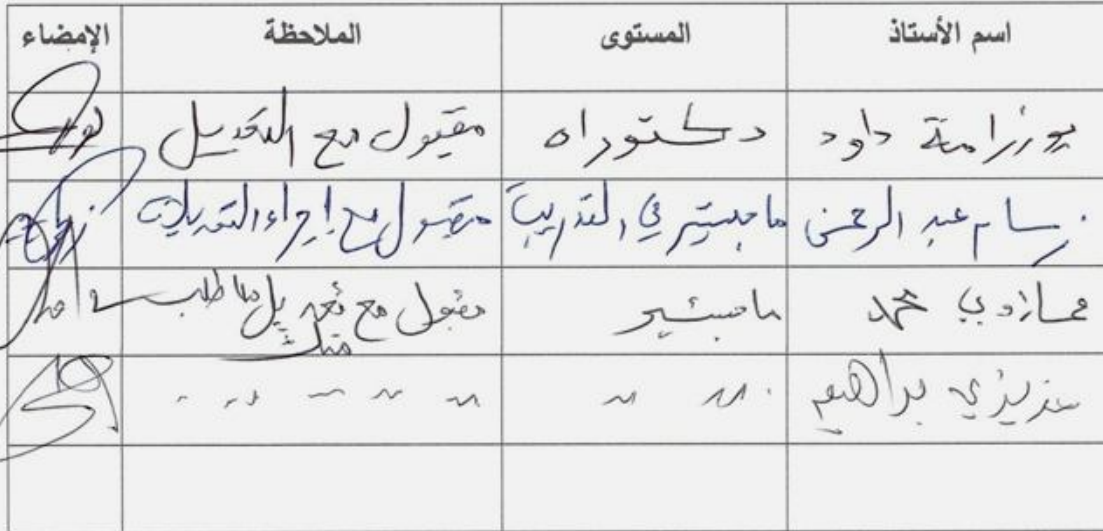 اسم الأستاذ المستوى الملاحظة الإمضاء
بوزرامة داود دكتوراه مقبول مع التعديل
عبد الرحمن ماجستير في التدريب مقبول مع إجراء التعديلات
محمد ماجستير مقبول مع تعديل ما طلب
منك
براهيم